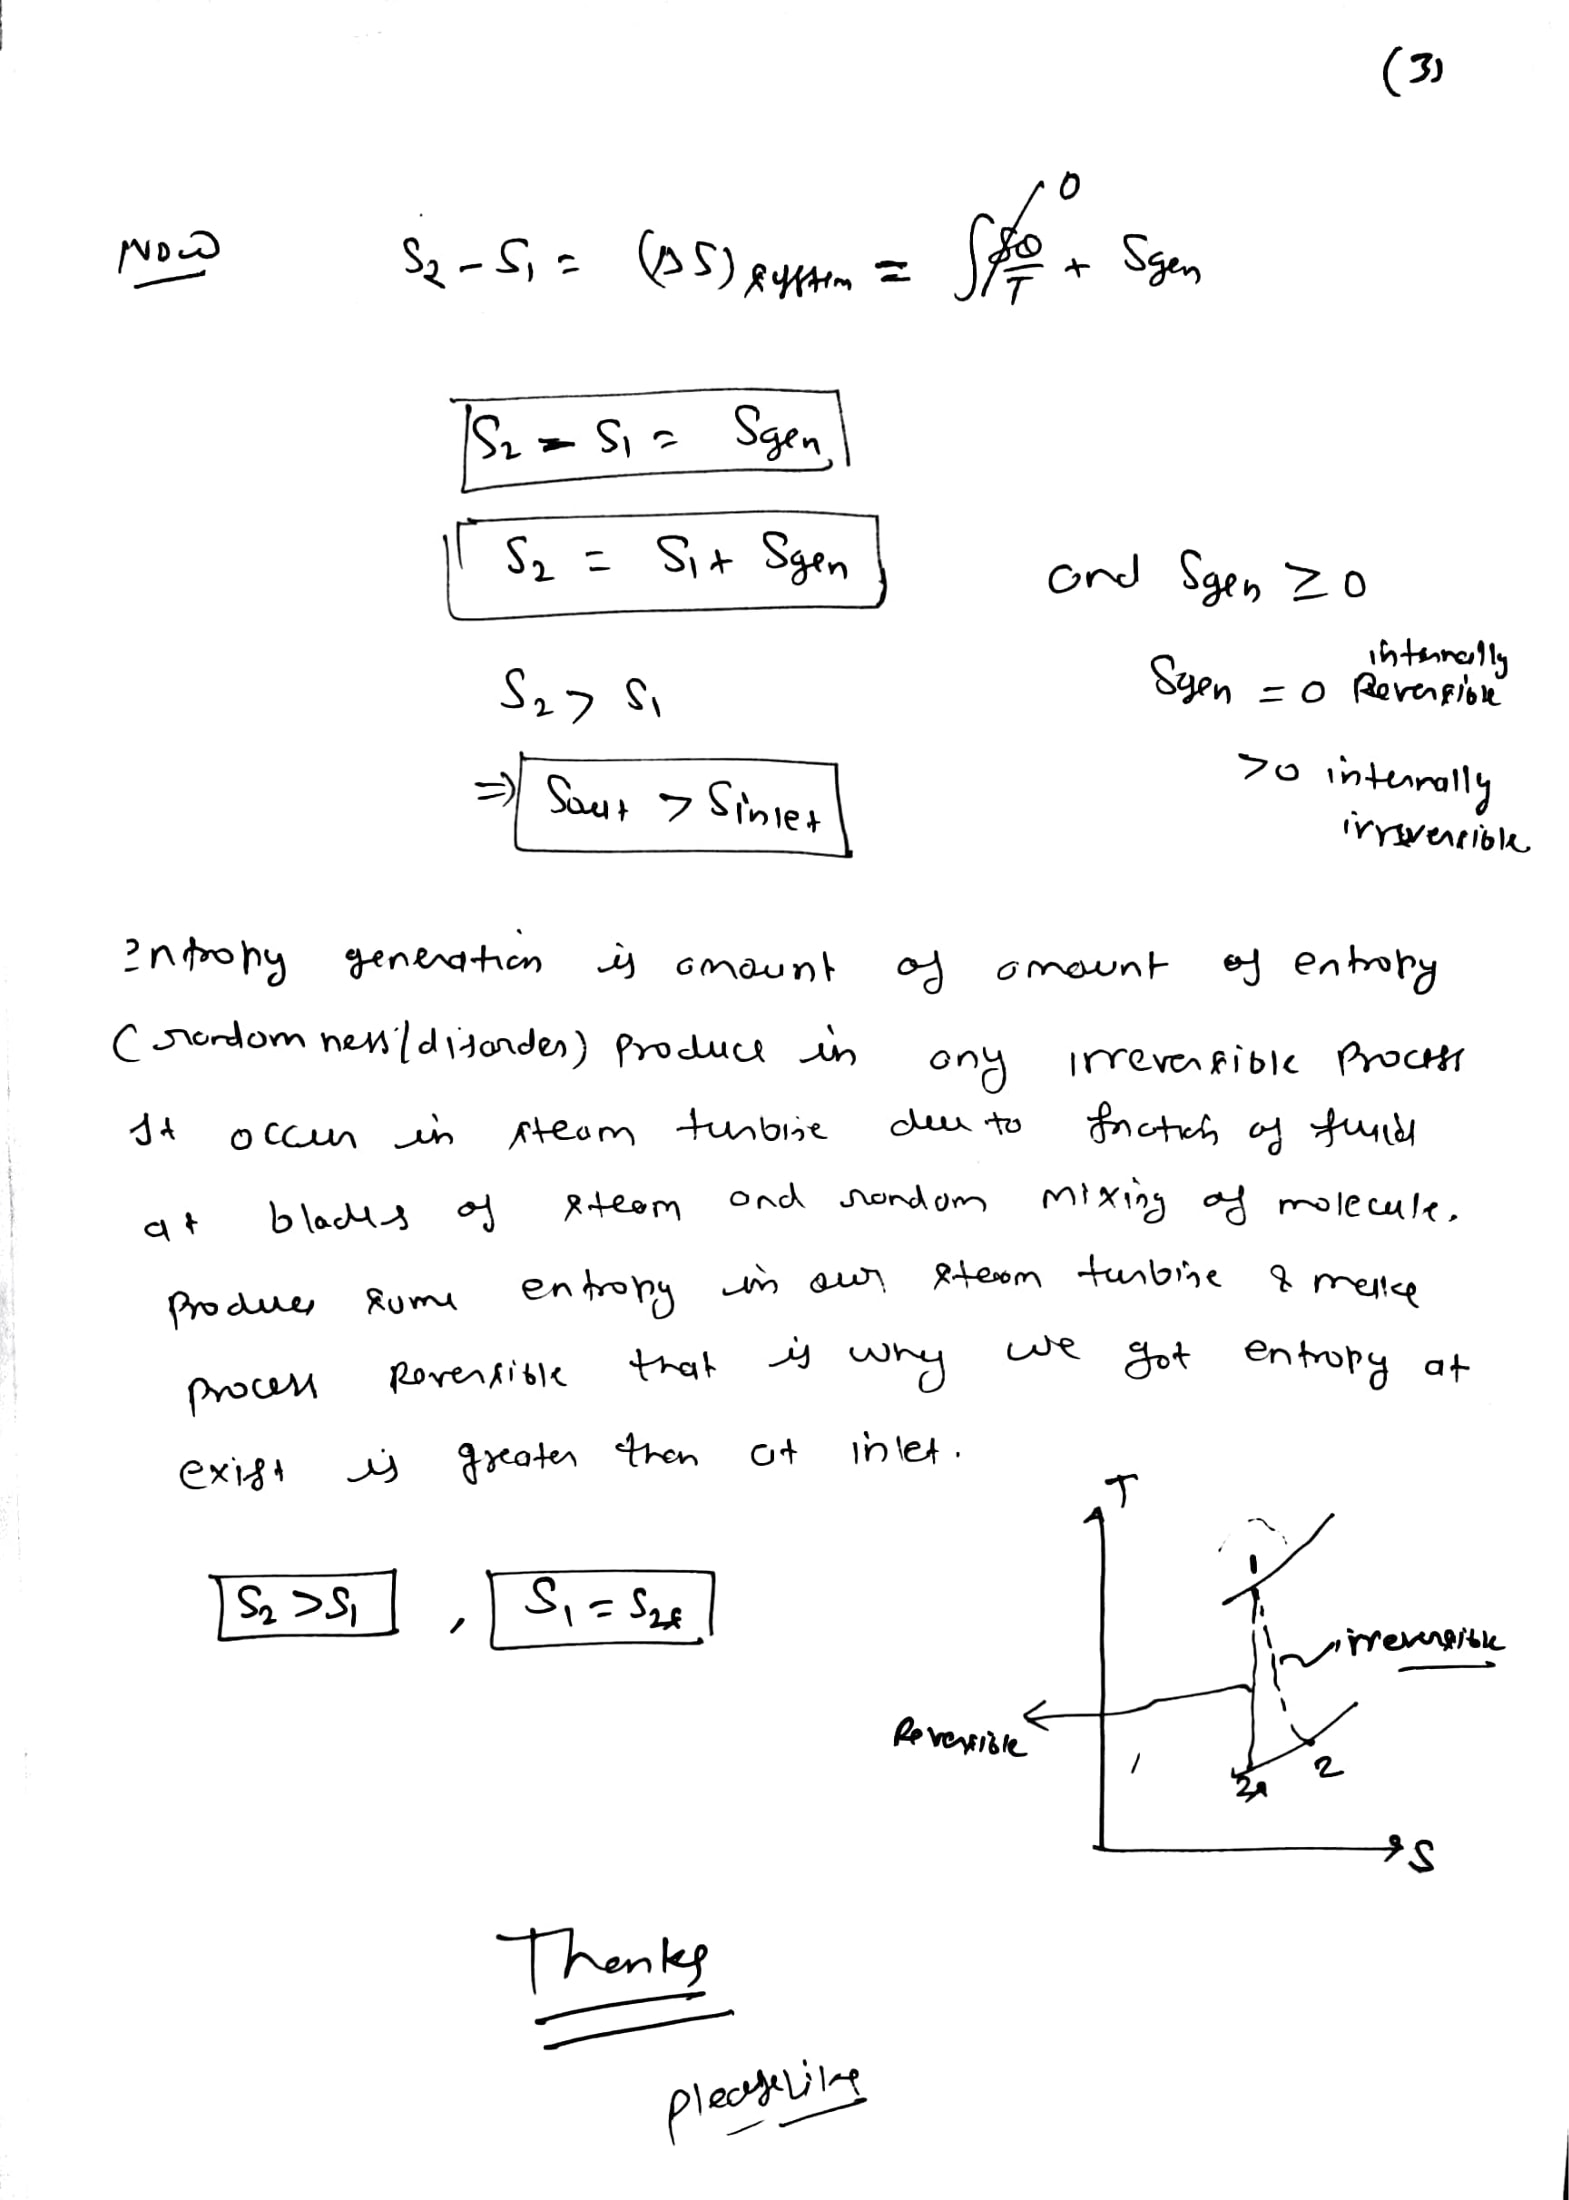 (3)
Now S₂ - S₁ = (ΔS) system = ∫ δQ/T → 0 + Sgen
S₂ - S₁ = Sgen
S₂ = S₁ + Sgen and Sgen ≥ 0
S₂ > S₁ Sgen = 0 internally Reversible
⇒ Sout > Sinlet >0 internally irreversible
Entropy generation is amount of amount of entropy
(randomness/disorder) produce in any irreversible process
It occur in steam turbine due to friction of fluid
at blades of steam and random mixing of molecule.
Produces some entropy in our steam turbine &
process Reversible that is why we got entropy at
exist is greater then at inlet.
S₂ > S₁ , S₁ = S₂s
T
1
irreversible
Reversible
2s 2
S
Thanks
please Like